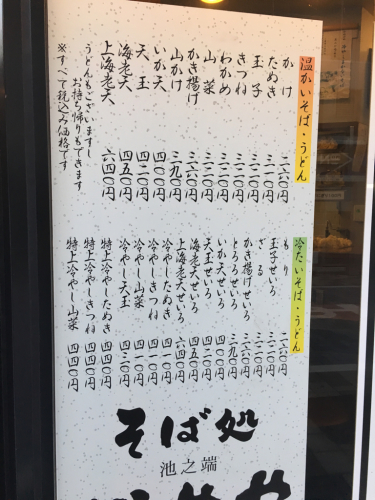 温かいそば・うどん
かけ 二六〇円
たぬき 三一〇円
玉子 三一〇円
きつね 三二〇円
わかめ 三二〇円
山菜 三二〇円
かき揚げ 三六〇円
山かけ 三九〇円
いか天 四〇〇円
天玉 四二〇円
海老天 四五〇円
上海老天 六四〇円
うどんもございますし
お持ち帰りもできます
※すべて税込み価格です
冷たいそば・うどん
もり 二六〇円
玉子せいろ 三一〇円
ざる 三二〇円
かき揚げせいろ 三六〇円
とろろせいろ 三九〇円
いか天せいろ 四〇〇円
天玉せいろ 四二〇円
海老天せいろ 四五〇円
上海老天せいろ 六四〇円
冷やしたぬき 四一〇円
冷やしきつね 四一〇円
冷やし山菜 四一〇円
冷やし天玉 四三〇円
特上冷やしたぬき 四四〇円
特上冷やしきつね 四四〇円
特上冷やし山菜 四四〇円
そば処
池之端